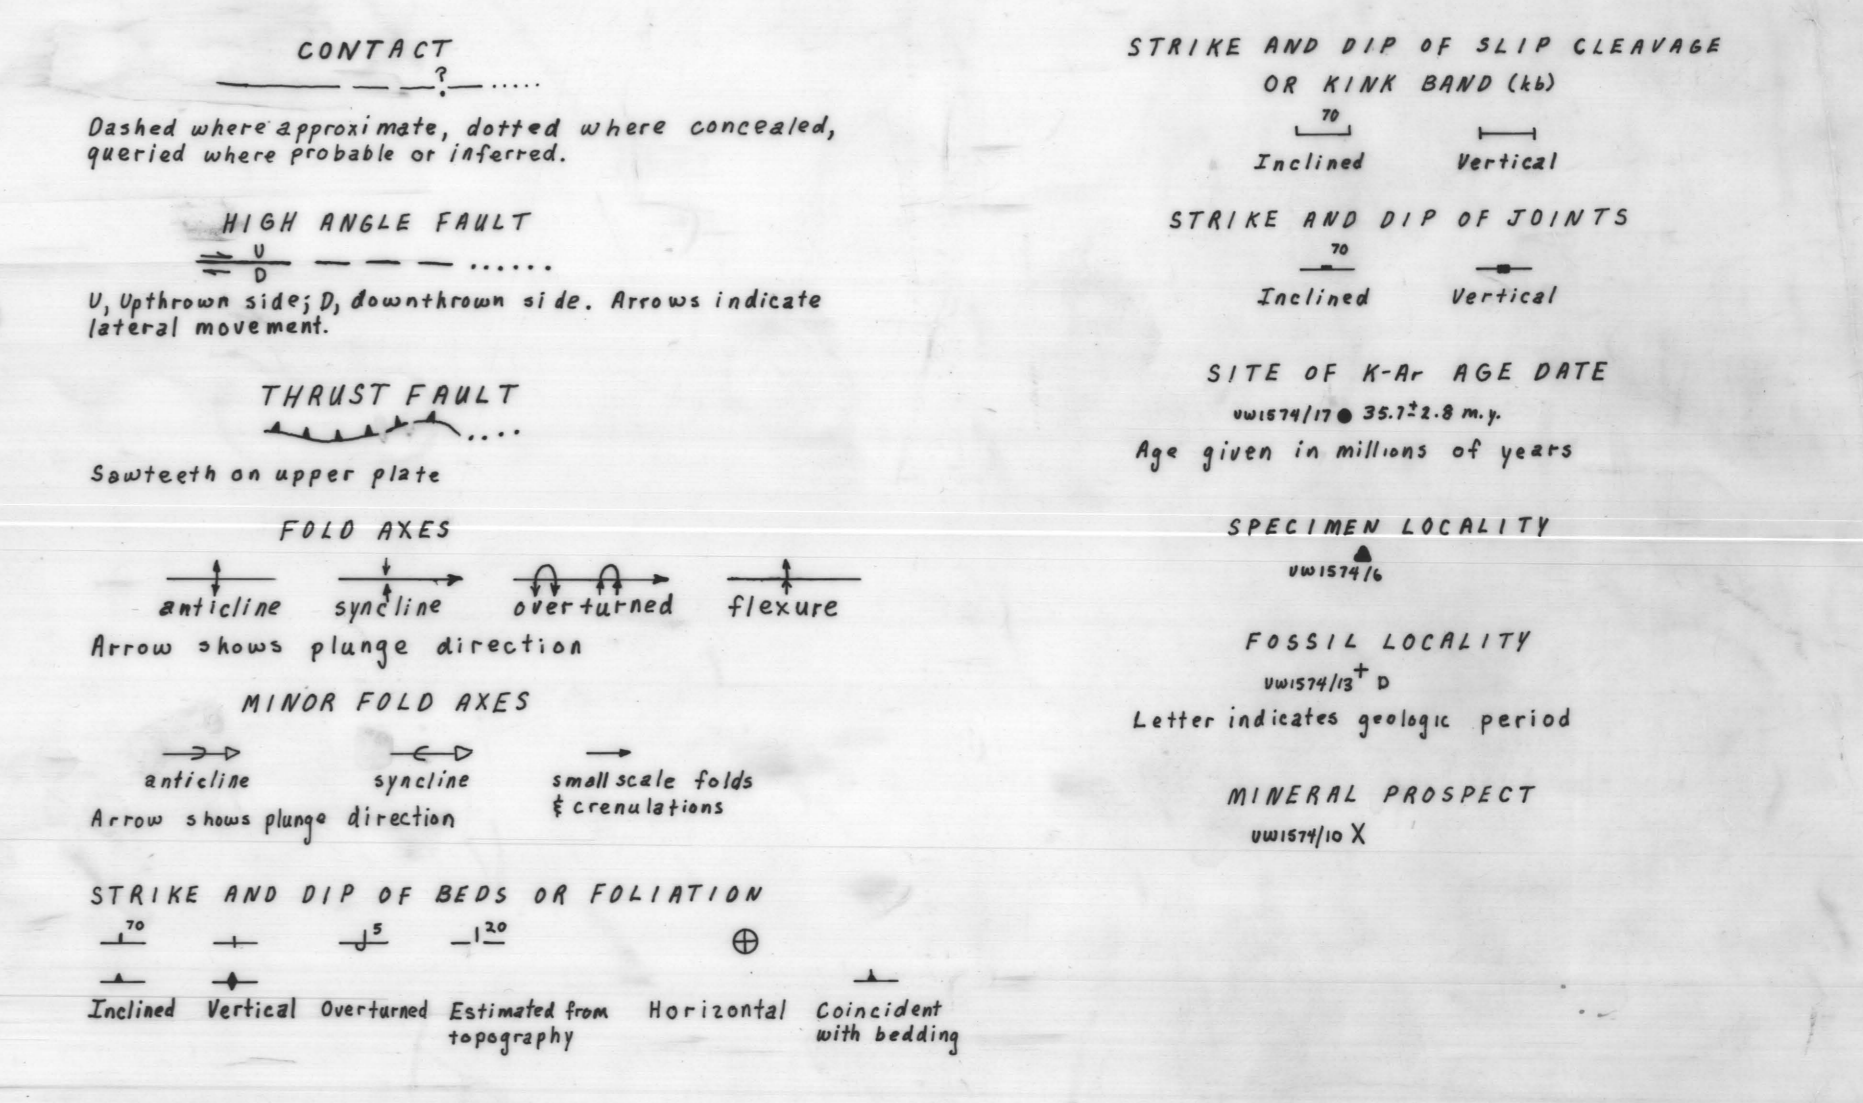 CONTACT
?
Dashed where approximate, dotted where concealed,
queried where probable or inferred.
HIGH ANGLE FAULT
U
D
U, Upthrown side; D, downthrown side. Arrows indicate
lateral movement.
THRUST FAULT
Sawteeth on upper plate
FOLD AXES
anticline syncline overturned flexure
Arrow shows plunge direction
MINOR FOLD AXES
anticline syncline small scale folds
& crenulations
Arrow shows plunge direction
STRIKE AND DIP OF BEDS OR FOLIATION
70 5 20
Inclined Vertical Overturned Estimated from Horizontal Coincident
topography with bedding
STRIKE AND DIP OF SLIP CLEAVAGE
OR KINK BAND (kb)
70
Inclined Vertical
STRIKE AND DIP OF JOINTS
70
Inclined Vertical
SITE OF K-Ar AGE DATE
UW1574/17 35.7±2.8 m.y.
Age given in millions of years
SPECIMEN LOCALITY
UW1574/6
FOSSIL LOCALITY
UW1574/13 + D
Letter indicates geologic period
MINERAL PROSPECT
UW1574/10 X